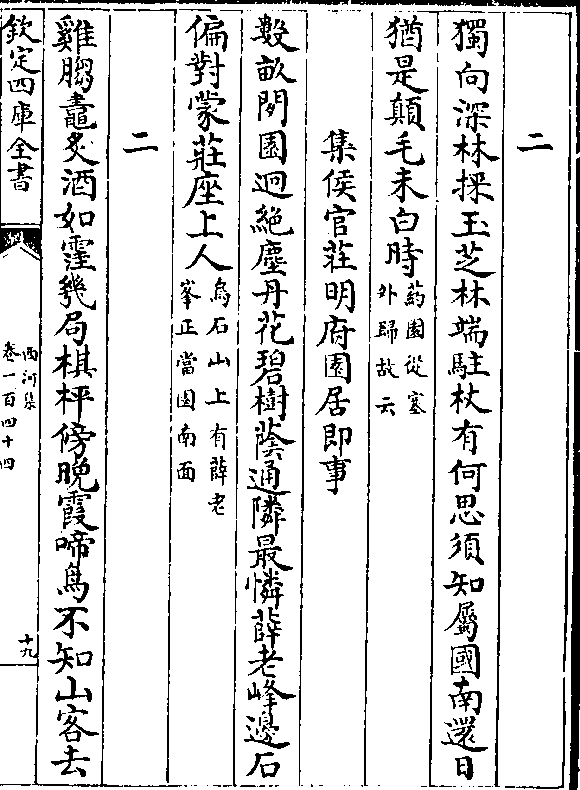 二
獨向深林採玉芝林端駐杖有何思須知屬國南還日
猶是顛毛未白時
葯園從塞
外歸故云
集侯官莊明府園居即事
數畝閒園迥絶塵丹花碧樹蔭通隣最憐薛老峰邊石
偏對蒙莊座上人
烏石山上有薛老
峯正當園南面
二
雞臅鼃炙酒如霪幾局棋枰傍晚霞啼鳥不知山客去
欽定四庫全書
西河集
卷一百四十四
十九